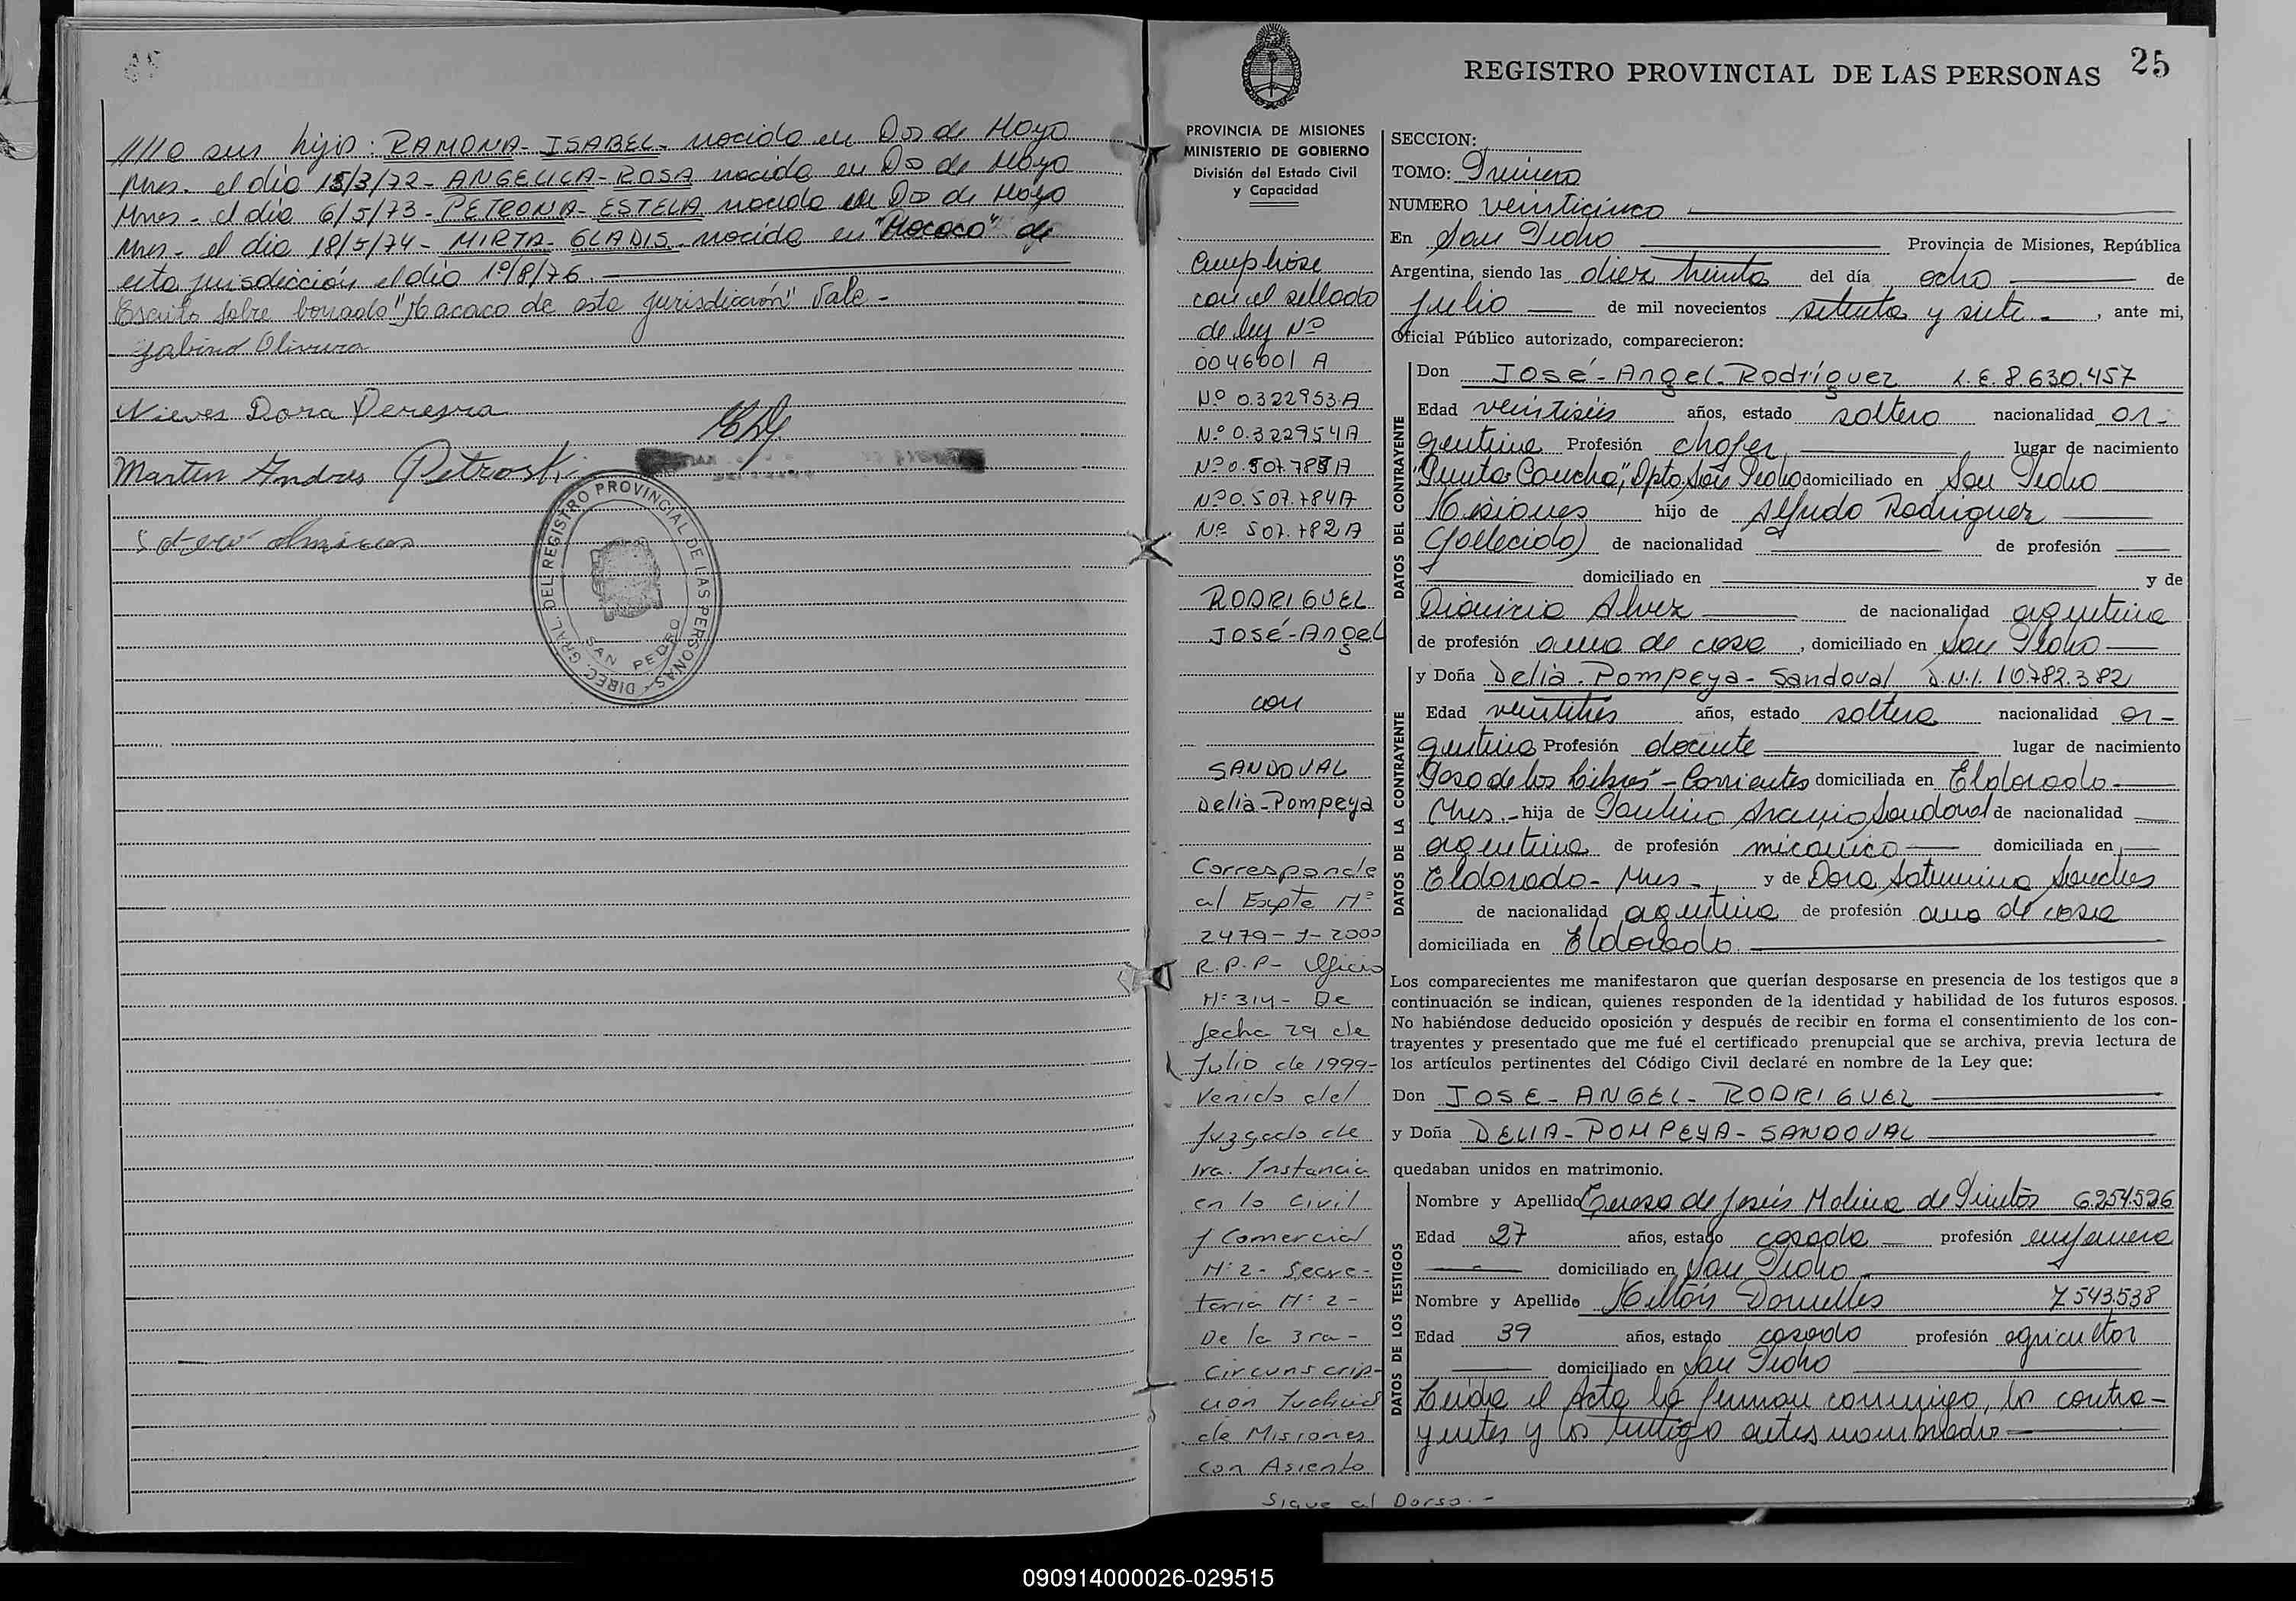 ////o sus hijos: RAMONA-ISABEL- nacida en Dos de Mayo
Mnes. el día 15/3/72- ANGELICA-ROSA nacida en Dos de Mayo
Mnes- el día 6/5/73- PETRONA-ESTELA nacida en Dos de Mayo
Mnes- el día 18/5/74- MIRTA-GLADIS- nacida en "Macaco" de
esta jurisdicción el día 1º/8/76.
Escrito sobre borrado "Macaco de esta jurisdicción" Vale-
Gabino Olivera
Nieves Dora Pereyra
Martin Andres Petroski
DIREC. GRAL. DEL REGISTRO PROVINCIAL DE LAS PERSONAS
SAN PEDRO
REGISTRO PROVINCIAL DE LAS PERSONAS 25
PROVINCIA DE MISIONES
MINISTERIO DE GOBIERNO
División del Estado Civil
y Capacidad
Cumplióse
con el sellado
de ley Nº
0046601 A
Nº 0.322953 A
Nº 0.322954 A
Nº 0.507.783 A
Nº 0.507.784 A
Nº 507.782 A
RODRIGUEZ
José-Angel
con
SANDOVAL
Delia-Pompeya
Corresponde
al Expte Nº
2479-J-2000
R.P.P- Oficio
Nº 314- De
fecha 29 de
Julio de 1999-
Venido del
Juzgado de
1ra. Instancia
en lo Civil
y Comercial
Nº 2- Secre-
taria Nº 2-
De la 3ra-
Circunscrip-
ción Judicial
de Misiones
con Asiento
Sigue al Dorso.-
SECCION:
TOMO: Primero
NUMERO veinticinco
En San Pedro Provincia de Misiones, República
Argentina, siendo las diez treinta del día ocho de
julio de mil novecientos setenta y siete , ante mi,
Oficial Público autorizado, comparecieron:
DATOS DEL CONTRAYENTE
Don José-Angel-Rodríguez L.E. 8.630.457
Edad veintiséis años, estado soltero nacionalidad ar-
gentina Profesión chofer lugar de nacimiento
"Puntas Concho", Dpto. San Pedro domiciliado en San Pedro
Misiones hijo de Alfredo Rodriguez
(fallecido) de nacionalidad de profesión
domiciliado en y de
Dionicia Alvez de nacionalidad argentina
de profesión ama de casa , domiciliado en San Pedro
DATOS DE LA CONTRAYENTE
y Doña Delia-Pompeya-Sandoval D.N.I. 10.782.382
Edad veintitrés años, estado soltera nacionalidad ar-
gentina Profesión docente lugar de nacimiento
"Paso de los Libres"-Corrientes domiciliada en Eldorado
Mnes.- hija de Paulino Sandoval de nacionalidad
argentina de profesión mecánico domiciliada en
Eldorado- Mnes- y de Dora Saturnina Sanches
de nacionalidad argentina de profesión ama de casa
domiciliada en Eldorado
Los comparecientes me manifestaron que querían desposarse en presencia de los testigos que a
continuación se indican, quienes responden de la identidad y habilidad de los futuros esposos.
No habiéndose deducido oposición y después de recibir en forma el consentimiento de los con-
trayentes y presentado que me fué el certificado prenupcial que se archiva, previa lectura de
los artículos pertinentes del Código Civil declaré en nombre de la Ley que:
Don JOSE-ANGEL-RODRIGUEZ
y Doña DELIA-POMPEYA-SANDOVAL
quedaban unidos en matrimonio.
DATOS DE LOS TESTIGOS
Nombre y Apellido Teresa de Jesús Molina de Pintos 6254526
Edad 27 años, estado casada profesión enfermera
domiciliado en San Pedro
Nombre y Apellido Miltón Dornelles 7.543.538
Edad 39 años, estado casado profesión agricultor
domiciliado en San Pedro
Leida el Acta la firman conmigo, los contra-
yentes y los testigos antes nombrados
090914000026-029515